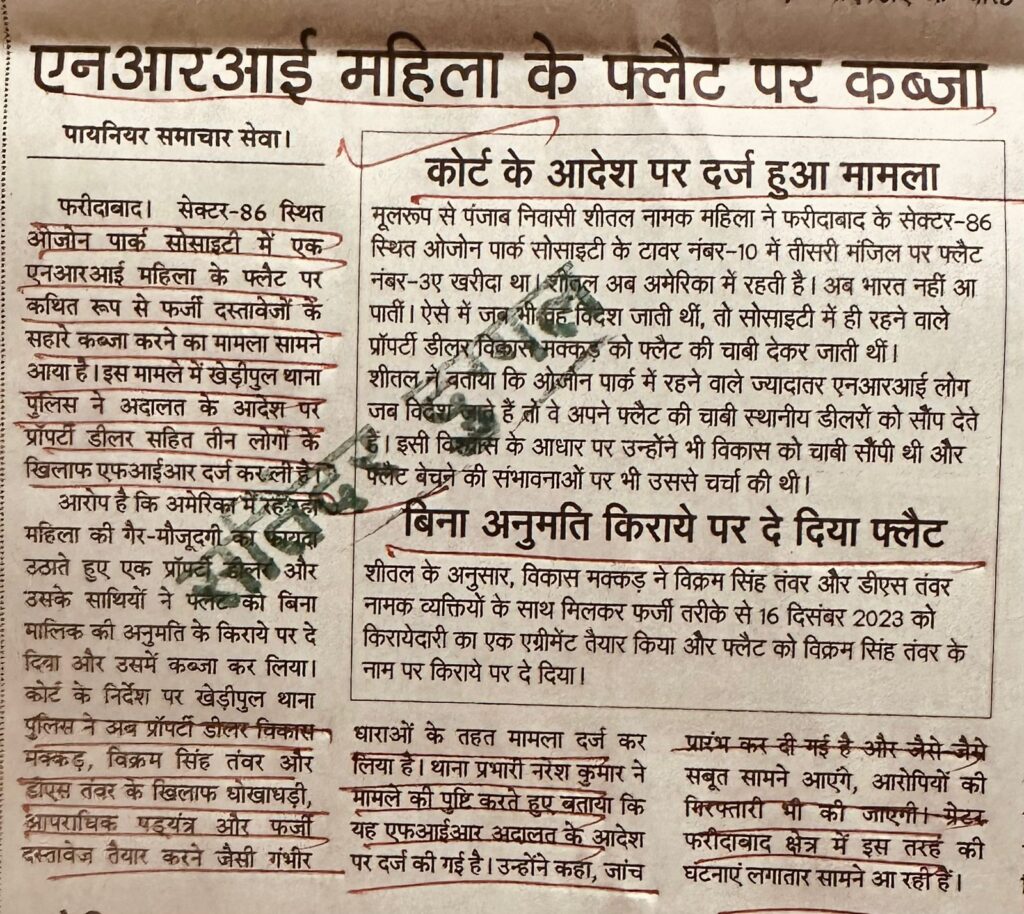 एनआरआई महिला के फ्लैट पर कब्जा
पायनियर समाचार सेवा।
फरीदाबाद। सेक्टर-86 स्थित
ओजोन पार्क सोसाइटी में एक
एनआरआई महिला के फ्लैट पर
कथित रूप से फर्जी दस्तावेजों के
सहारे कब्जा करने का मामला सामने
आया है। इस मामले में खेड़ीपुल थाना
पुलिस ने अदालत के आदेश पर
प्रॉपर्टी डीलर सहित तीन लोगों के
खिलाफ एफआईआर दर्ज कर ली है।
आरोप है कि अमेरिका में रह रही
महिला की गैर-मौजूदगी का फायदा
उठाते हुए एक प्रॉपर्टी डीलर और
उसके साथियों ने फ्लैट को बिना
मालिक की अनुमति के किराये पर दे
दिया और उसमें कब्जा कर लिया।
कोर्ट के निर्देश पर खेड़ीपुल थाना
पुलिस ने अब प्रॉपर्टी डीलर विकास
मक्कड़, विक्रम सिंह तंवर और
डीएस तंवर के खिलाफ धोखाधड़ी,
आपराधिक षड्यंत्र और फर्जी
दस्तावेज तैयार करने जैसी गंभीर
कोर्ट के आदेश पर दर्ज हुआ मामला
मूलरूप से पंजाब निवासी शीतल नामक महिला ने फरीदाबाद के सेक्टर-86
स्थित ओजोन पार्क सोसाइटी के टावर नंबर-10 में तीसरी मंजिल पर फ्लैट
नंबर-3ए खरीदा था। शीतल अब अमेरिका में रहती है। अब भारत नहीं आ
पातीं। ऐसे में जब भी वह विदेश जाती थीं, तो सोसाइटी में ही रहने वाले
प्रॉपर्टी डीलर विकास मक्कड़ को फ्लैट की चाबी देकर जाती थीं।
शीतल ने बताया कि ओजोन पार्क में रहने वाले ज्यादातर एनआरआई लोग
जब विदेश जाते हैं तो वे अपने फ्लैट की चाबी स्थानीय डीलरों को सौंप देते
हैं। इसी विश्वास के आधार पर उन्होंने भी विकास को चाबी सौंपी थी और
फ्लैट बेचने की संभावनाओं पर भी उससे चर्चा की थी।
बिना अनुमति किराये पर दे दिया फ्लैट
शीतल के अनुसार, विकास मक्कड़ ने विक्रम सिंह तंवर और डीएस तंवर
नामक व्यक्तियों के साथ मिलकर फर्जी तरीके से 16 दिसंबर 2023 को
किरायेदारी का एक एग्रीमेंट तैयार किया और फ्लैट को विक्रम सिंह तंवर के
नाम पर किराये पर दे दिया।
धाराओं के तहत मामला दर्ज कर
लिया है। थाना प्रभारी नरेश कुमार ने
मामले की पुष्टि करते हुए बताया कि
यह एफआईआर अदालत के आदेश
पर दर्ज की गई है। उन्होंने कहा, जांच
प्रारंभ कर दी गई है और जैसे जैसे
सबूत सामने आएंगे, आरोपियों की
गिरफ्तारी भी की जाएगी। ग्रेटर
फरीदाबाद क्षेत्र में इस तरह की
घटनाएं लगातार सामने आ रही हैं।